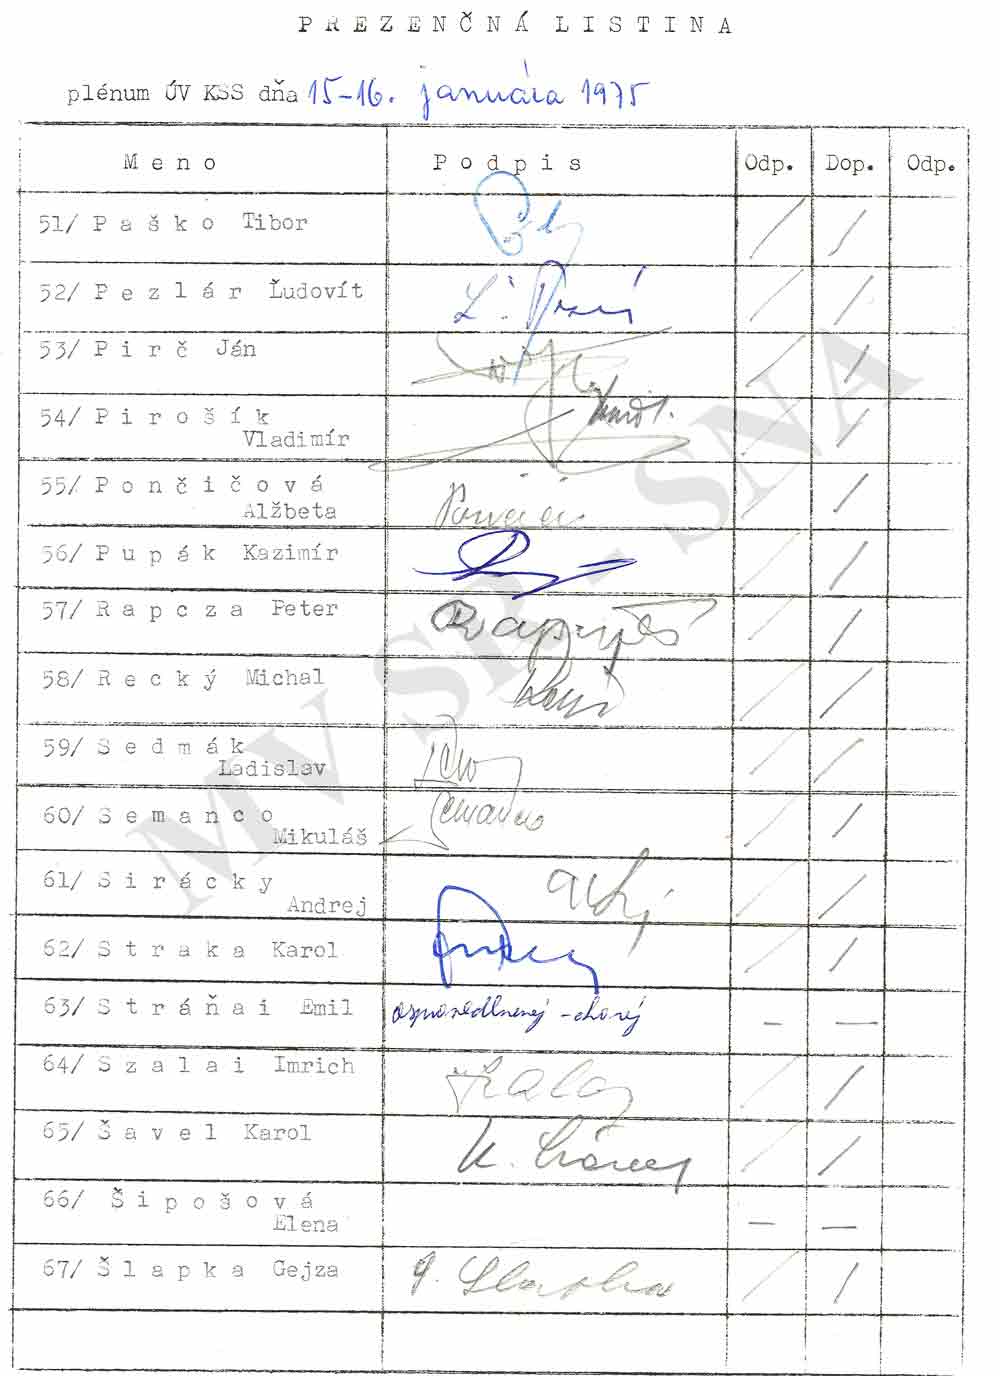 PREZENČNÁ LISTINA
plénum ÚV KSS dňa 15-16. januára 1975
Meno Podpis Odp. Dop. Odp.
51/ Paško Tibor
52/ Pezlár Ľudovít
53/ Pirč Ján
54/ Pirošík
Vladimír
55/ Pončičová
Alžbeta
56/ Pupák Kazimír
57/ Rapcza Peter
58/ Recký Michal
59/ Sedmák
Ladislav
60/ Semanco
Mikuláš
61/ Sirácky
Andrej
62/ Straka Karol
63/ Stráňai Emil ospravedlnený - chorý — —
64/ Szalai Imrich
65/ Šavel Karol
66/ Šipošová
Elena — —
67/ Šlapka Gejza
MV SR - SNA